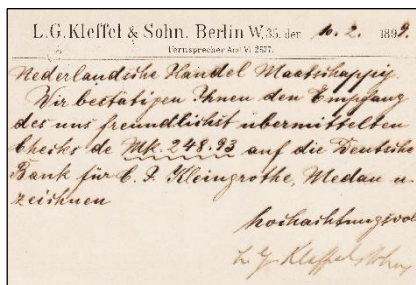 L. G. Kleffel & Sohn. Berlin W, 35. den 10. 2. 1899.
Fernsprecher Amt VI. 2577.
Nederlandsche Handel Maatschappij.
Wir bestätigen Ihnen den Empfang
des uns freundlichst übermittelten
Checks de Mk. 248.93 auf die Deutsche
Bank für C. J. Kleingrothe, Medan u.
zeichnen
hochachtungsvoll
L. G. Kleffel & Sohn